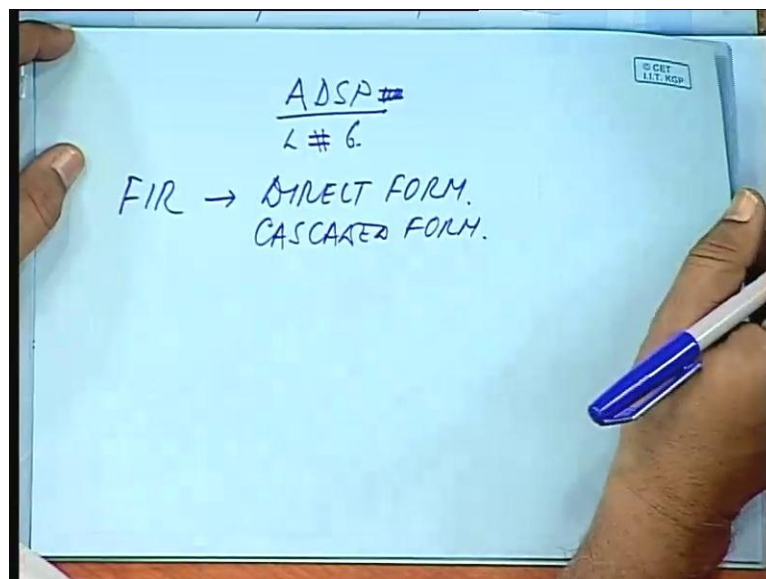 © CET
I.I.T. KGP
ADSP
L # 6.
FIR → DIRECT FORM.
CASCADED FORM.